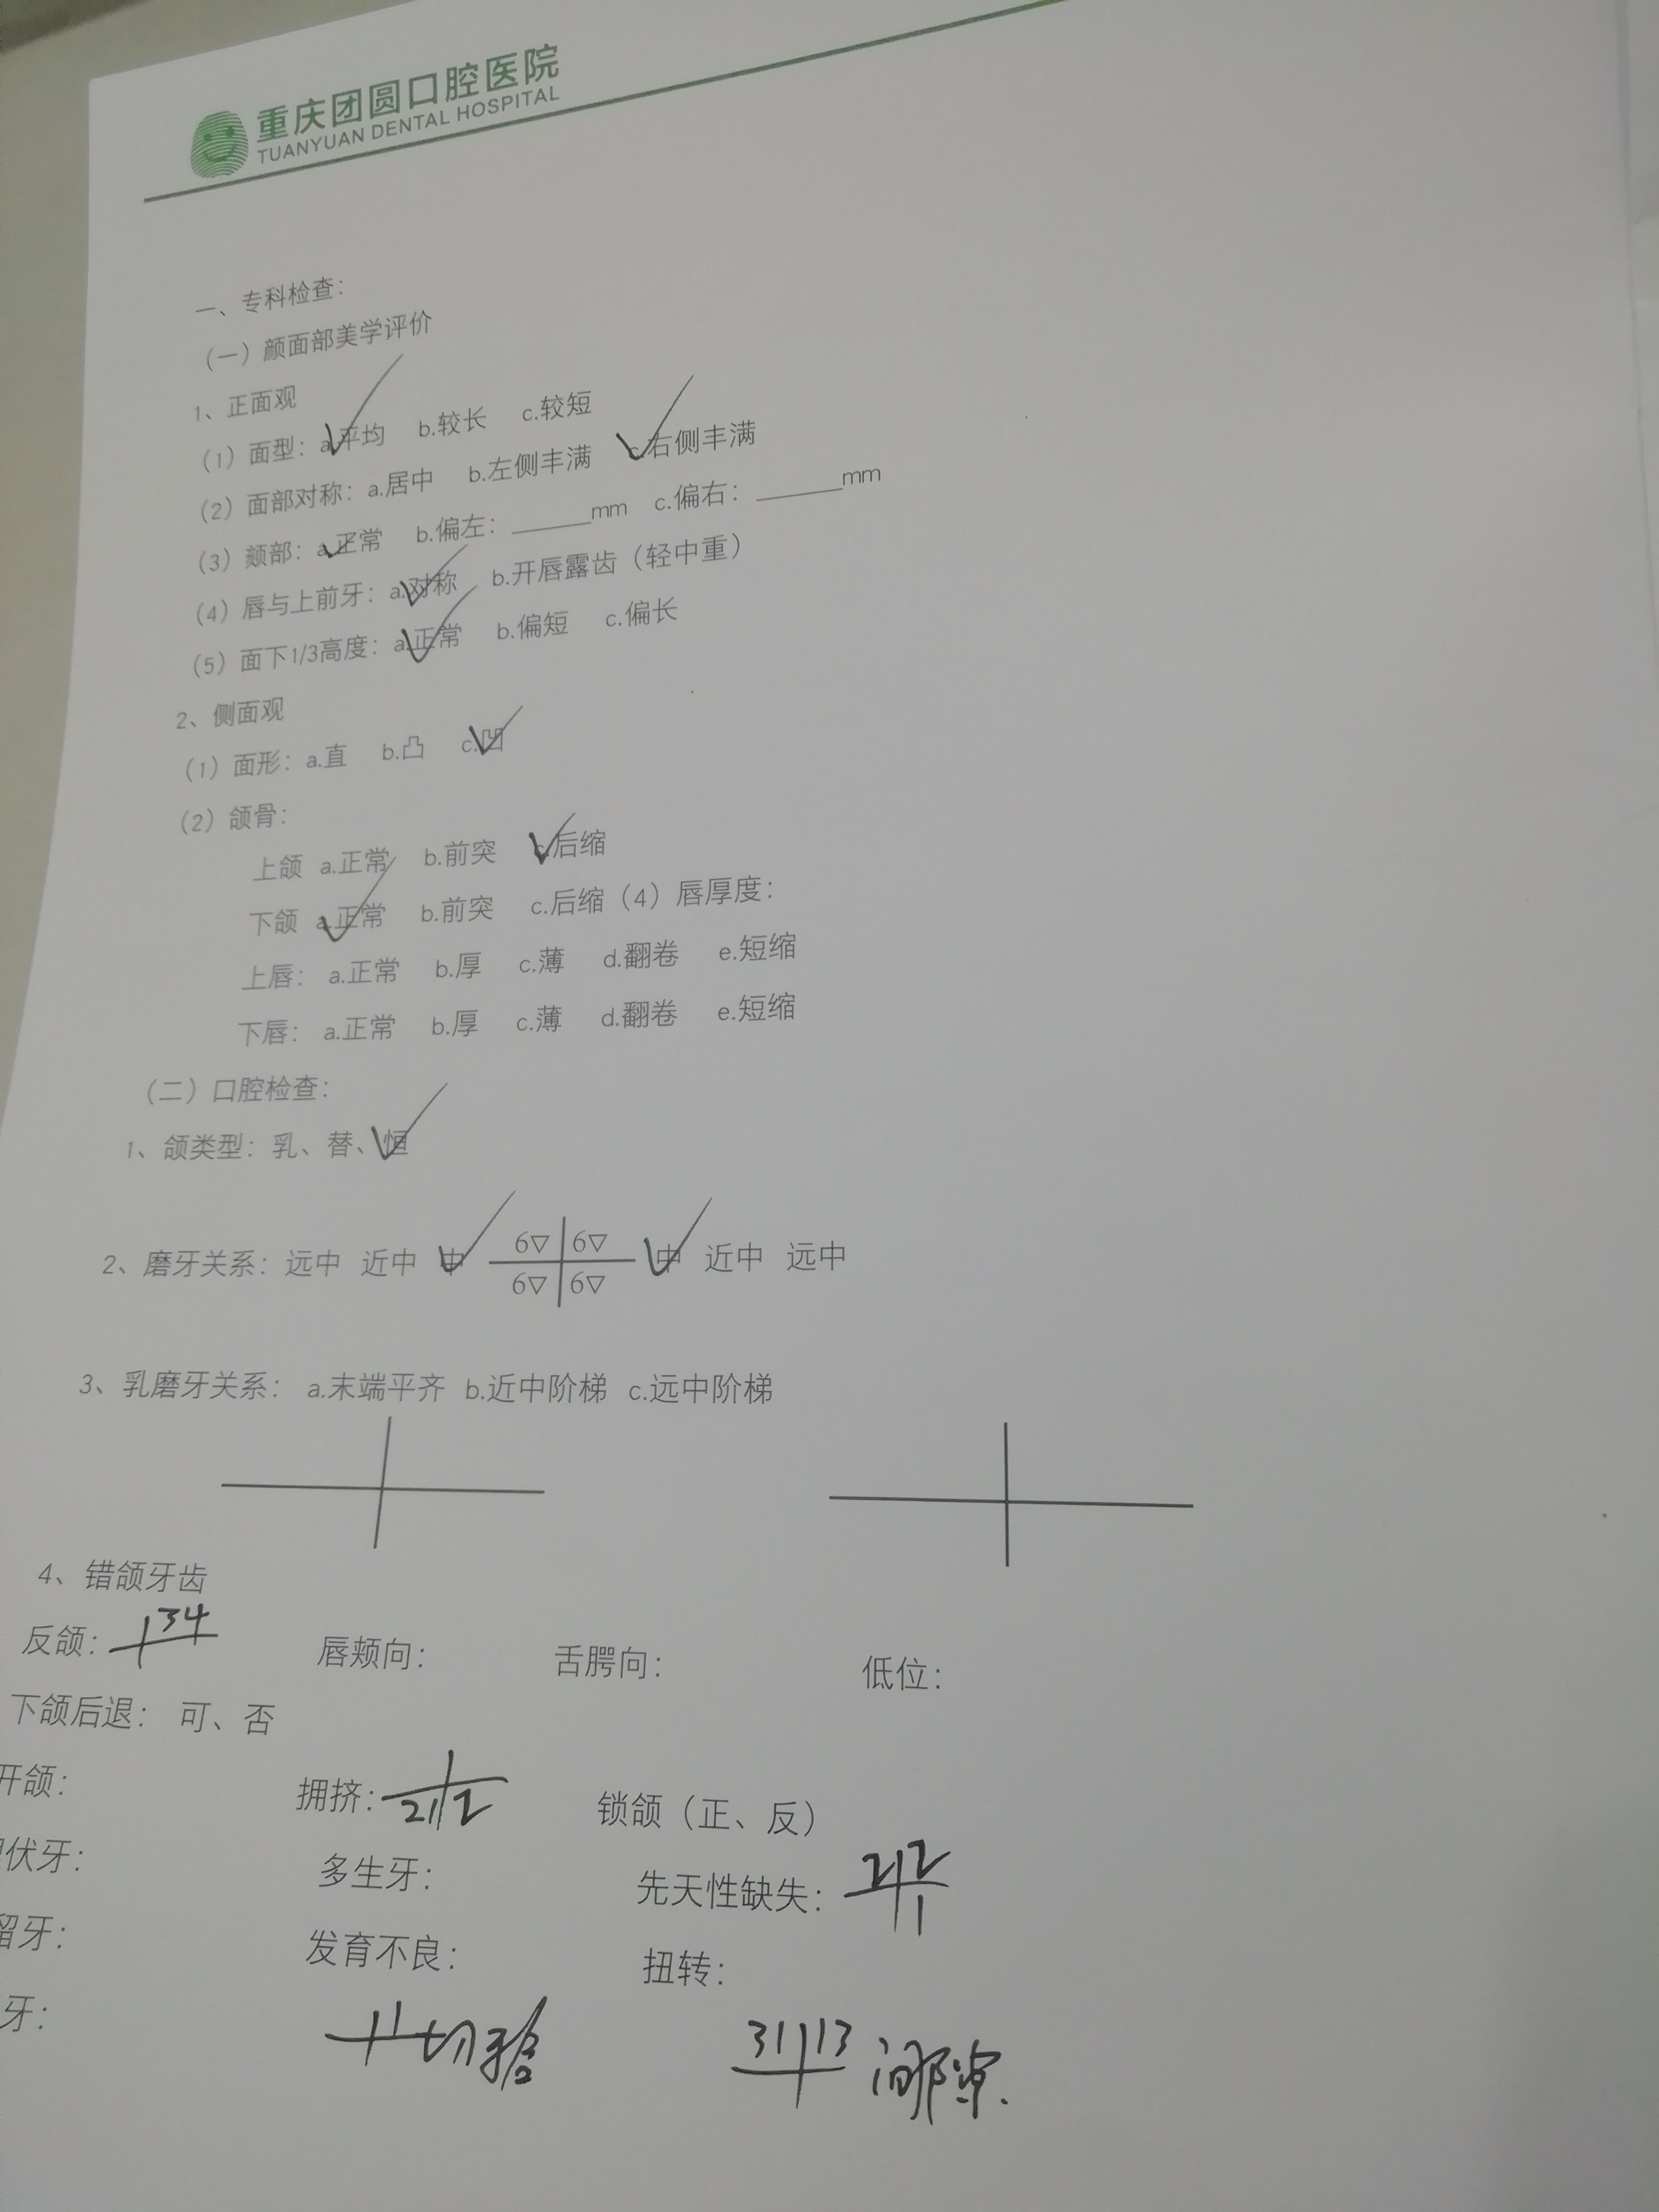 重庆团圆口腔医院
TUANYUAN DENTAL HOSPITAL
一、专科检查：
（一）颜面部美学评价
1、正面观
（1）面型：a.平均 b.较长 c.较短
（2）面部对称：a.居中 b.左侧丰满 c.右侧丰满
（3）颏部：a.正常 b.偏左：______mm c.偏右：______mm
（4）唇与上前牙：a.对称 b.开唇露齿（轻中重）
（5）面下1/3高度：a.正常 b.偏短 c.偏长
2、侧面观
（1）面形：a.直 b.凸 c.凹
（2）颌骨：
上颌 a.正常 b.前突 c.后缩
下颌 a.正常 b.前突 c.后缩（4）唇厚度：
上唇：a.正常 b.厚 c.薄 d.翻卷 e.短缩
下唇：a.正常 b.厚 c.薄 d.翻卷 e.短缩
（二）口腔检查：
1、颌类型：乳、替、恒
2、磨牙关系：远中 近中 中 6▽ 6▽ 中 近中 远中
6▽ 6▽
3、乳磨牙关系： a.末端平齐 b.近中阶梯 c.远中阶梯
4、错颌牙齿
反颌：34 唇颊向： 舌腭向： 低位：
下颌后退： 可、否
开颌： 拥挤：21 2 锁颌（正、反）
伏牙： 多生牙： 先天性缺失：2 2
1
留牙： 发育不良： 扭转：
牙：
1 切 31 13 间隙